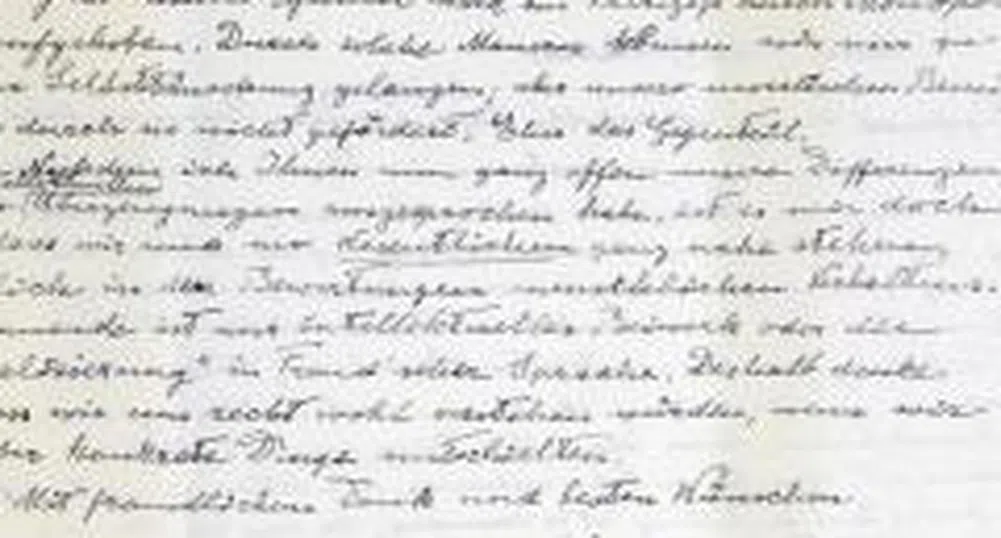 Durch solche Mauern können wir nur
Selbsttäuschung gelangen, aber unsere moralischen
durch sie nicht gefördert. Eher das Gegenteil.
Nachdem ich Ihnen nun ganz offen unsere Differenzen
Überzeugungen ausgesprochen habe, ist es mir doch
wir uns im Wesentlichen ganz nahe stehen,
in den Bewertungen menschlichen Verhaltens.
ist nur intellektuelles Beiwerk oder die
in Freud'scher Sprache. Deshalb denke
wir uns recht wohl verstehen würden, wenn wir
konkrete Dinge unterhielten.
Mit freundlichem Dank und besten Wünschen